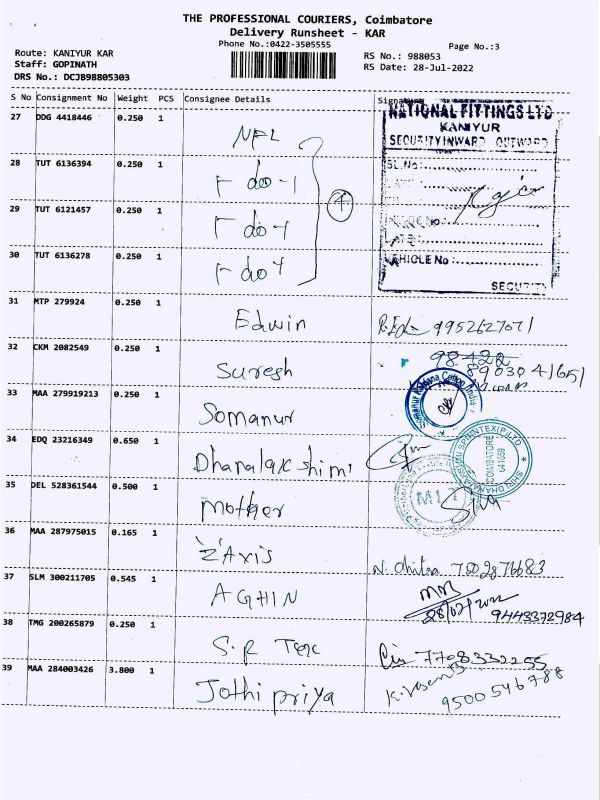 THE PROFESSIONAL COURIERS, Coimbatore
Delivery Runsheet - KAR
Phone No.:0422-3505555
Page No.:3
Route: KANIYUR KAR
Staff: GOPINATH
DRS No.: DCJB98805303
RS No.: 988053
RS Date: 28-Jul-2022
S No Consignment No Weight PCS Consignee Details Signature
27 DDG 4418446 0.250 1 NFL
NATIONAL FITTINGS LTD
KANIYUR
SECURITY INWARD OUTWARD
SL.No:
VEHICLE No:
SECURITY
28 TUT 6136394 0.250 1 do
29 TUT 6121457 0.250 1 do
4
30 TUT 6136278 0.250 1 do
31 MTP 279924 0.250 1 Edwin 9952627071
32 CKM 2082549 0.250 1 Suresh 98422
8903041651
33 MAA 279919213 0.250 1 Somanur
34 EDQ 23216349 0.650 1 Dhanalakshimi
COIMBATORE
641659
35 DEL 528361544 0.500 1 mother
36 MAA 287975015 0.165 1 'Z' AXIS N. Chitra 7502876683
37 SLM 300211705 0.545 1 AGHIN 28/07/2022
9443372984
38 TMG 200265879 0.250 1 S.R Tex 7708332255
39 MAA 284003426 3.800 1 Jothipriya K. Vasanth
9500546788